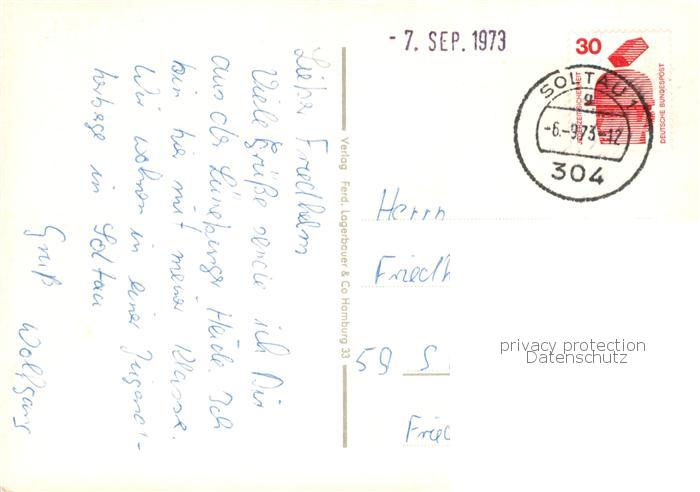 - 7. SEP. 1973
30
JEDERZEIT SICHERHEIT
DEUTSCHE BUNDESPOST
SOLTAU 1
a
-6.-9.73-12
304
Lieber Friedhelm
Viele Grüße sende ich Dir
aus der Lüneburger Heide. Ich
bin hier mit meiner Klasse.
Wir wohnen in einer Jugend-
herberge in Soltau
Gruß Wolfgang
Verlag Ferd. Lagerbauer & Co Hamburg 33
Herrn
Friedh
59 S
Fried
privacy protection
Datenschutz